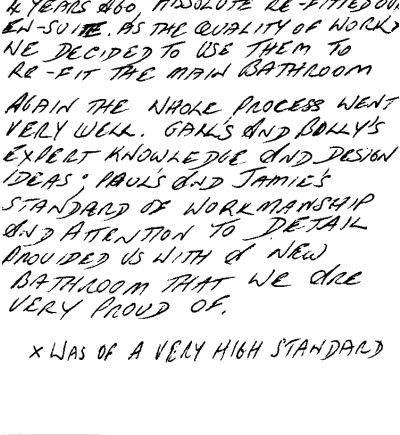 4 YEARS AGO, ABSOLUTE RE-FITTED OUR
EN-SUITE. AS THE QUALITY OF WORKX
WE DECIDED TO USE THEM TO
RE-FIT THE MAIN BATHROOM
AGAIN THE WHOLE PROCESS WENT
VERY WELL. GAIL'S AND BOLLY'S
EXPERT KNOWLEDGE AND DESIGN
IDEAS; PAUL'S AND JAMIE'S
STANDARD OF WORKMANSHIP
AND ATTENTION TO DETAIL
PROVIDED US WITH A NEW
BATHROOM THAT WE ARE
VERY PROUD OF.
x WAS OF A VERY HIGH STANDARD